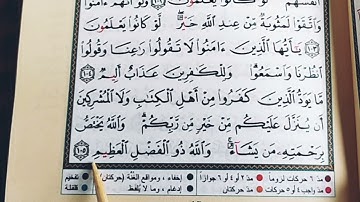 أَنفُسَهُمْ لَوْ كَانُوا۟ يَعْلَمُونَ ١٠٢ وَلَوْ أَنَّهُمْ ءَامَنُوا۟
وَٱتَّقَوْا۟ لَمَثُوبَةٌ مِّنْ عِندِ ٱللَّهِ خَيْرٌ لَّوْ كَانُوا۟ يَعْلَمُونَ
١٠٣ يَٰٓأَيُّهَا ٱلَّذِينَ ءَامَنُوا۟ لَا تَقُولُوا۟ رَٰعِنَا وَقُولُوا۟
ٱنظُرْنَا وَٱسْمَعُوا۟ وَلِلْكَٰفِرِينَ عَذَابٌ أَلِيمٌ ١٠٤
مَّا يَوَدُّ ٱلَّذِينَ كَفَرُوا۟ مِنْ أَهْلِ ٱلْكِتَٰبِ وَلَا ٱلْمُشْرِكِينَ
أَن يُنَزَّلَ عَلَيْكُم مِّنْ خَيْرٍ مِّن رَّبِّكُمْ وَٱللَّهُ يَخْتَصُّ
بِرَحْمَتِهِۦ مَن يَشَآءُ وَٱللَّهُ ذُو ٱلْفَضْلِ ٱلْعَظِيمِ ١٠٥
مدّ ٦ حركات لزوماً مدّ ٢ أو ٤ أو ٦ جوازاً إخفاء، ومواقع الغُنَّة (حركتان) تفخيم
مدّ واجب ٤ أو ٥ حركات مدّ حركتان إدغام، وما لا يُلفَظ قلقلة